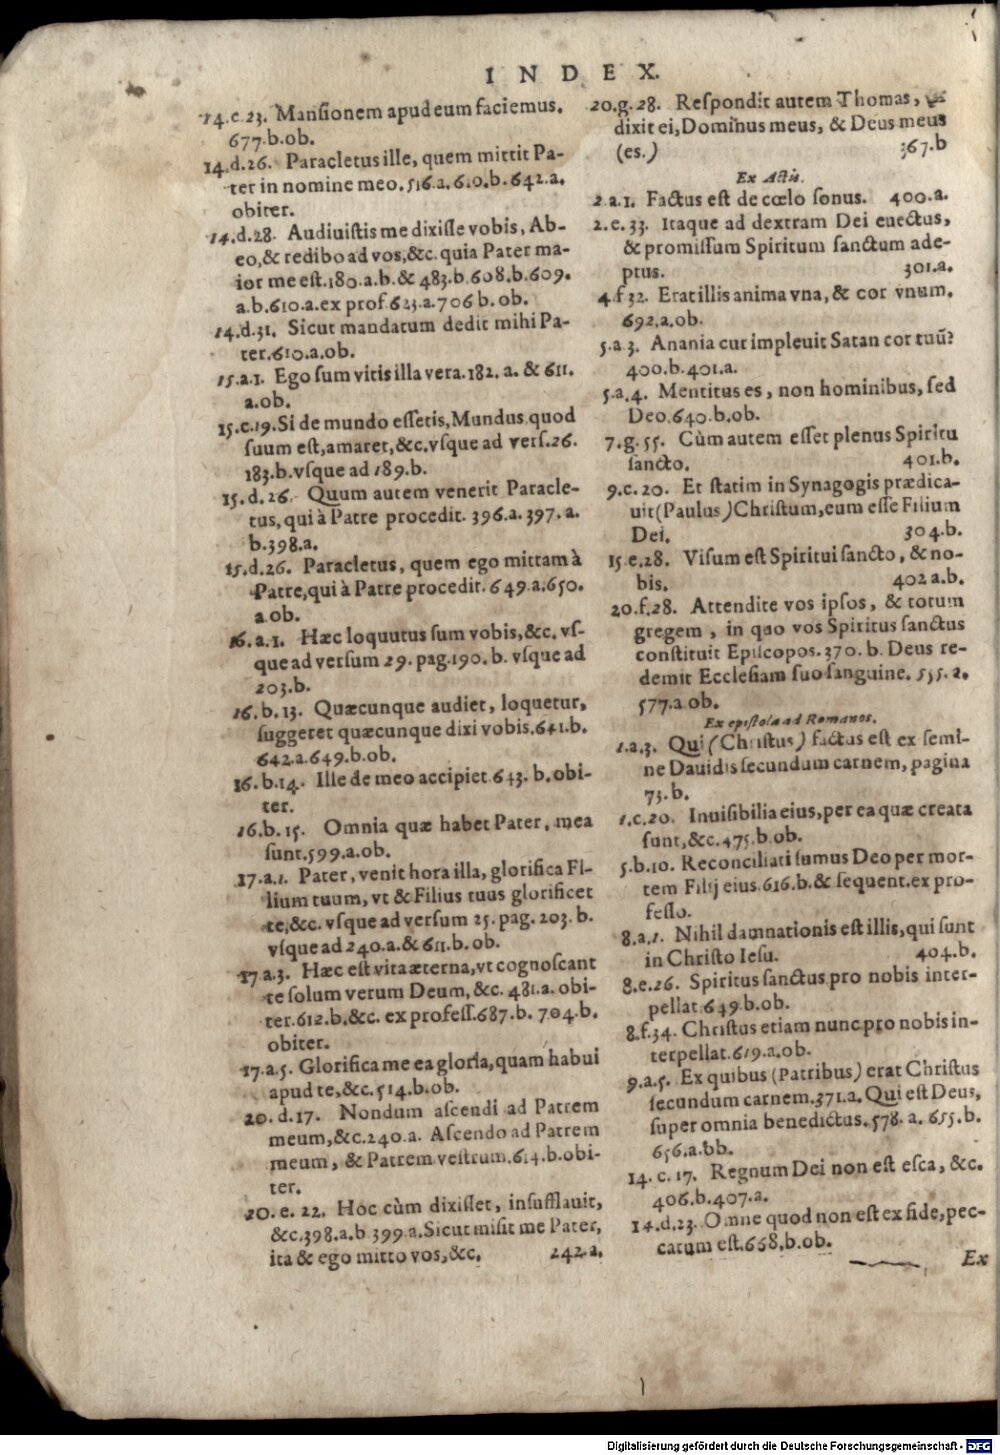 INDEX.
14.c.23. Mansionem apud eum faciemus.
677.b.ob.
14.d.26. Paracletus ille, quem mittit Pa-
ter in nomine meo. 516.a. 610.b. 642.a.
obiter.
14.d.28. Audiuistis me dixisse vobis, Ab-
eo, & redibo ad vos, &c. quia Pater ma-
ior me est. 180.a.b. & 483.b. 608.b. 609.
a.b. 610.a. ex prof. 623.a. 706 b. ob.
14.d.31. Sicut mandatum dedit mihi Pa-
ter. 610.a.ob.
15.a.1. Ego sum vitis illa vera. 182. a. & 611.
a.ob.
15.c.19. Si de mundo essetis, Mundus quod
suum est, amaret, &c. vsque ad vers. 26.
183.b. vsque ad 189.b.
15.d.26. Quum autem venerit Paracle-
tus, qui à Patre procedit. 396.a. 397. a.
b. 398.a.
15.d.26. Paracletus, quem ego mittam à
Patre, qui à Patre procedit. 649.a. 650.
a.ob.
16.a.1. Hæc loquutus sum vobis, &c. vs-
que ad versum 29. pag. 190. b. vsque ad
203.b.
16.b.13. Quæcunque audiet, loquetur,
suggeret quæcunque dixi vobis. 641.b.
642.a. 649.b.ob.
16.b.14. Ille de meo accipiet 643. b. obi-
ter.
16.b.15. Omnia quæ habet Pater, mea
sunt. 599.a.ob.
17.a.1. Pater, venit hora illa, glorifica Fi-
lium tuum, vt & Filius tuus glorificet
te, &c. vsque ad versum 25. pag. 203. b.
vsque ad 240.a. & 611.b. ob.
17.a.3. Hæc est vita æterna, vt cognoscant
te solum verum Deum, &c. 481.a. obi-
ter. 612.b. &c. ex profess. 687.b. 704.b.
obiter.
17.a.5. Glorifica me ea gloria, quam habui
apud te, &c. 514.b.ob.
20.d.17. Nondum ascendi ad Patrem
meum, &c. 240.a. Ascendo ad Patrem
meum, & Patrem vestrum. 614.b. obi-
ter.
20.e.22. Hoc cùm dixisset, insufflauit,
&c. 398.a.b 399.a. Sicut misit me Pater,
ita & ego mitto vos, &c. 242.a.
20.g.28. Respondit autem Thomas, &
dixit ei, Dominus meus, & Deus meus
(es.) 367.b
Ex Actis.
2.a.1. Factus est de cœlo sonus. 400.a.
2.e.33. Itaque ad dextram Dei euectus,
& promissum Spiritum sanctum ade-
ptus. 301.a.
4.f 32. Erat illis anima vna, & cor vnum.
692.a.ob.
5.a.3. Anania cur impleuit Satan cor tuũ?
400.b. 401.a.
5.a.4. Mentitus es, non hominibus, sed
Deo. 640.b.ob.
7.g.55. Cùm autem esset plenus Spiritu
sancto. 401.b.
9.c.20. Et statim in Synagogis prædica-
uit (Paulus) Christum, eum esse Filium
Dei. 304.b.
15.e.28. Visum est Spiritui sancto, & no-
bis. 402 a.b.
20.f.28. Attendite vos ipsos, & totum
gregem, in quo vos Spiritus sanctus
constituit Episcopos. 370. b. Deus re-
demit Ecclesiam suo sanguine. 535. a.
577.a.ob.
Ex epistola ad Romanos.
1.a.3. Qui (Christus) factus est ex semi-
ne Dauidis secundum carnem, pagina
73.b.
1.c.20. Inuisibilia eius, per ea quæ creata
sunt, &c. 475.b.ob.
5.b.10. Reconciliati sumus Deo per mor-
tem Filij eius. 616.b. & sequent. ex pro-
fesso.
8.a.1. Nihil damnationis est illis, qui sunt
in Christo Iesu. 404.b.
8.e.26. Spiritus sanctus pro nobis inter-
pellat. 649.b.ob.
8.f.34. Christus etiam nunc pro nobis in-
terpellat. 619.a.ob.
9.a.5. Ex quibus (Patribus) erat Christus
secundum carnem. 371.a. Qui est Deus,
super omnia benedictus. 578. a. 655.b.
656.a.bb.
14.c.17. Regnum Dei non est esca, &c.
406.b. 407.a.
14.d.23. Omne quod non est ex fide, pec-
catum est. 668.b.ob.
Ex
Digitalisierung gefördert durch die Deutsche Forschungsgemeinschaft - DFG